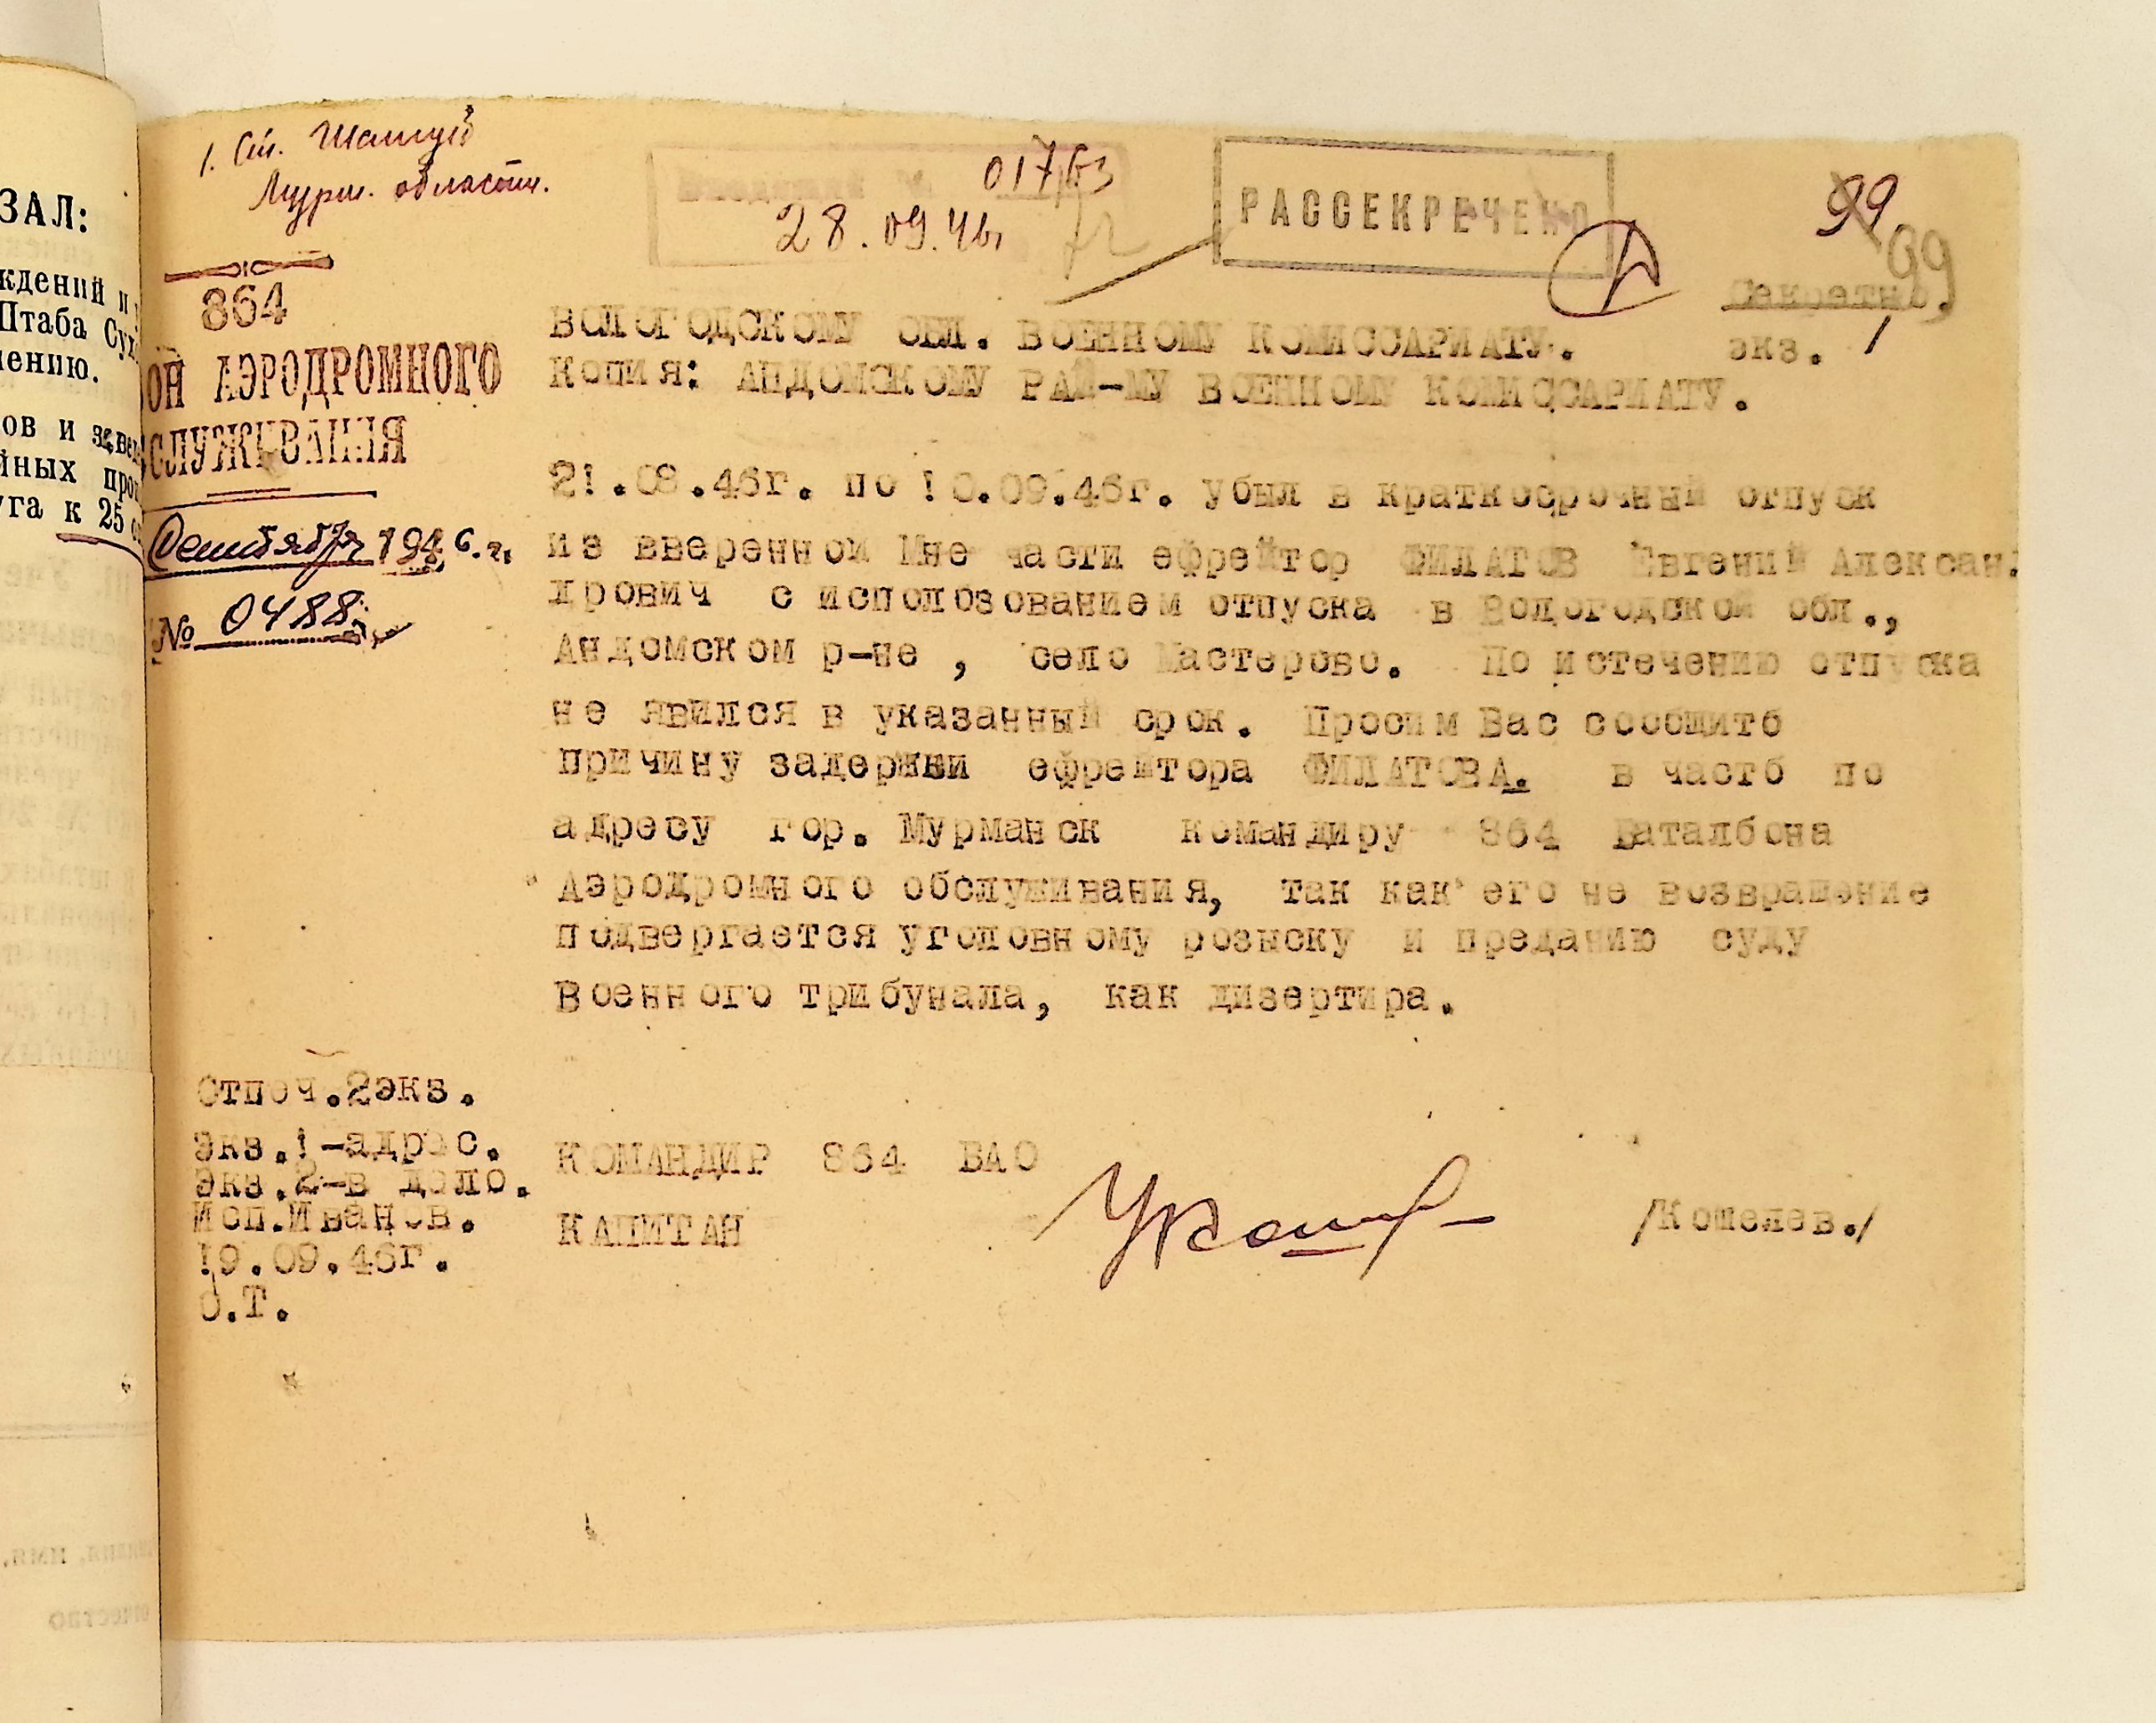 ЗАЛ:
ждений и
Штаба Сух
чению.
ов и
йных
уга к 25
1. Ст. Шонгуй
Мурм. области.
0176
28.09.46г
РАССЕКРЕЧЕНО
99
99
Секретно.
экз. 1
864
ОН АЭРОДРОМНОГО
СЛУЖИВАНИЯ
Сентября 1946.г.
№ 0488
ВОЛОГОДСКОМУ ОБЛ. ВОЕННОМУ КОМИССАРИАТУ.
Копия: АНДОМСКОМУ РАЙ-МУ ВОЕННОМУ КОМИССАРИАТУ.
2!.08.46г. по !0.09.46г. убыл в краткосрочный отпуск
из вверенной Мне части ефрейтор ФИЛАТОВ Евгений Алексан
дрович с исполбзованием отпуска в Вологодской обл.,
Андомском р-не , село Мастерово. По истечению отпуска
не явился в указанный срок. Просим Вас сообщитб
причину задержки ефрейтора ФИЛАТОВА. в частб по
адресу гор. Мурманск командиру 864 Баталбона
Аэродромного обслуживания, так как его не возвращение
подвергается уголовному розыску и преданию суду
Военного трибунала, как дизертира.
Отпеч.2экз.
Экз.!-адрес.
Экз.2-в дело.
Исп.Иванов.
!9.09.46г.
О.Т.
КОМАНДИР 864 БАО
КАПИТАН
/Кошелев./